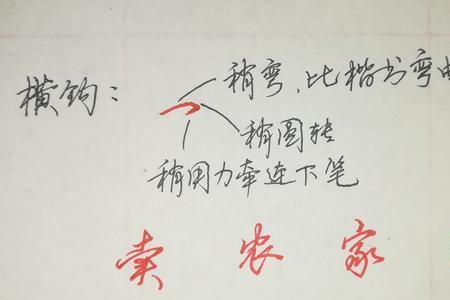 稍弯，比楷书弯曲
横钩：
稍圆转
稍用力牵连下笔
卖 农 家